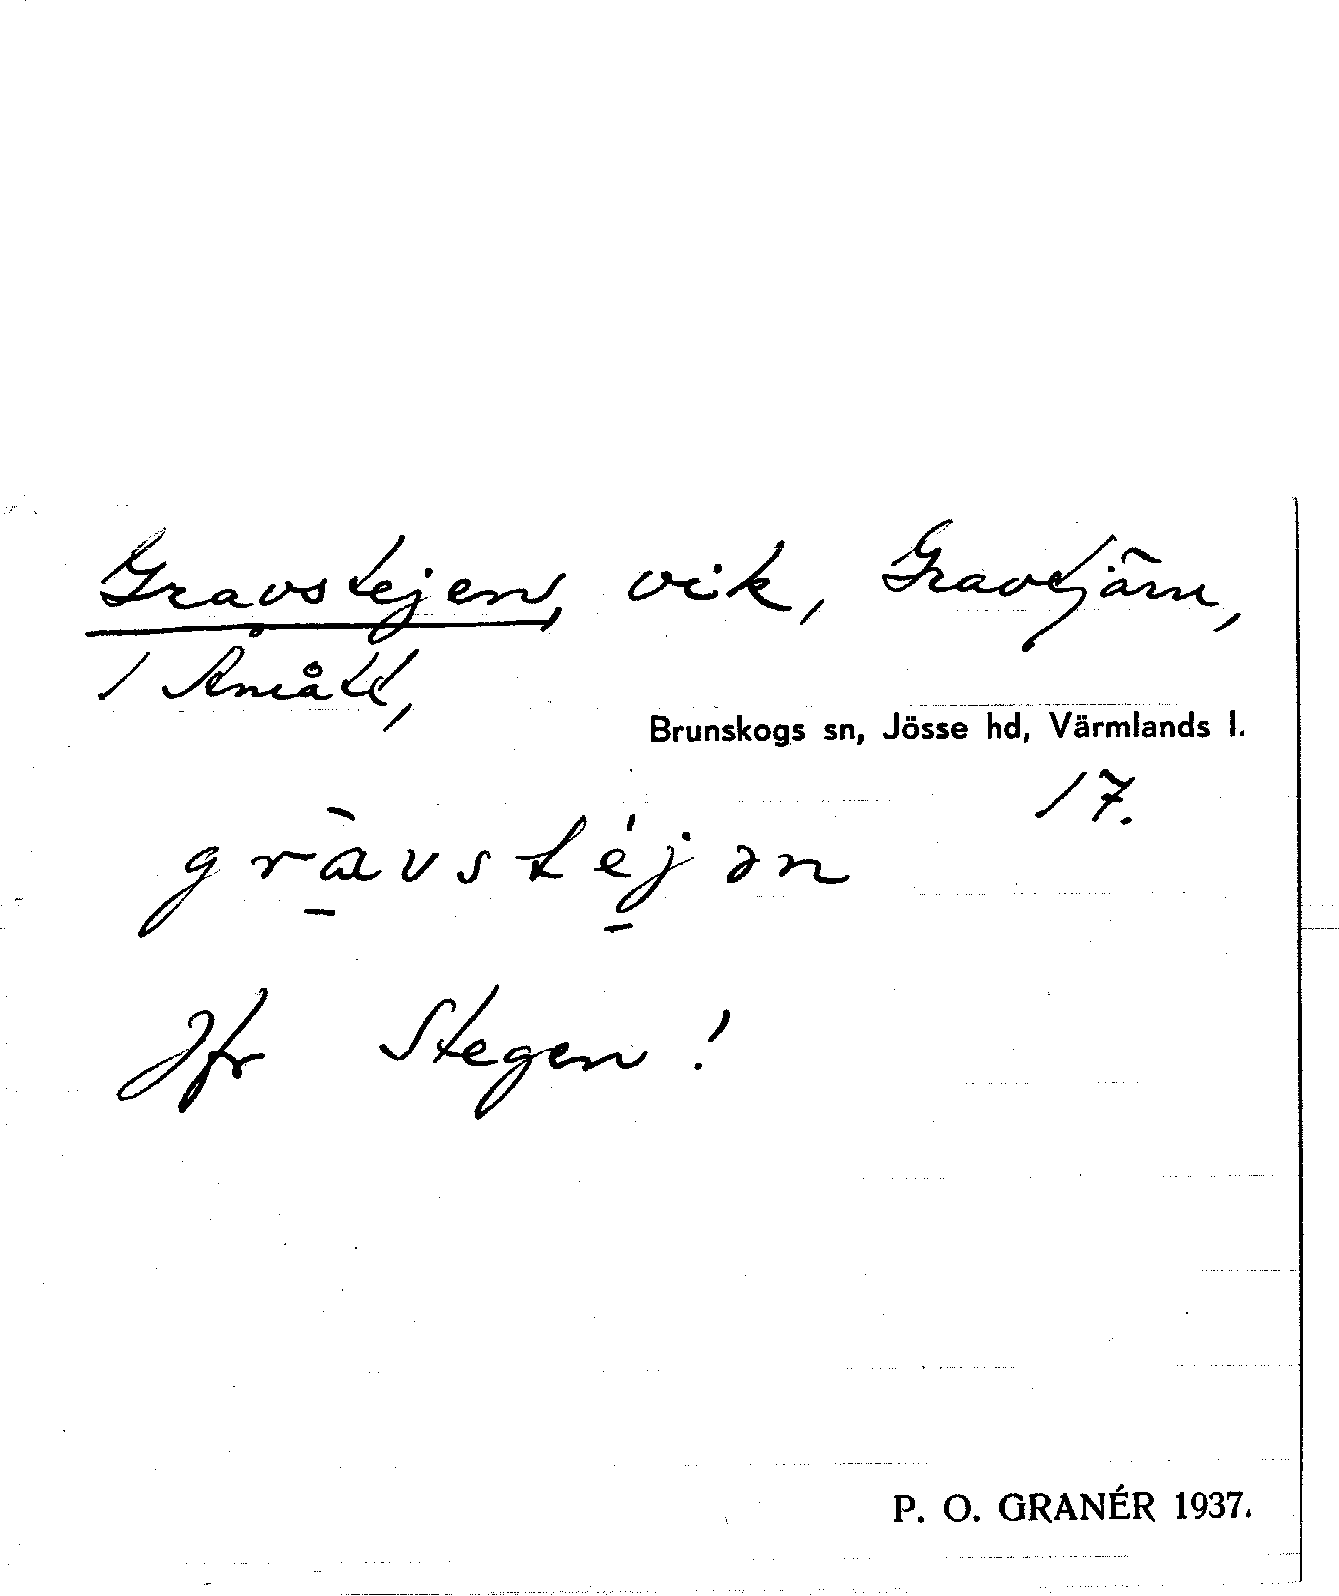 Gravstejen, vik, Gravtjärn,
1 Åmått,
Brunskogs sn, Jösse hd, Värmlands l.
17.
gràvstéjən
Jfr Stegen!
P. O. GRANÉR 1937.